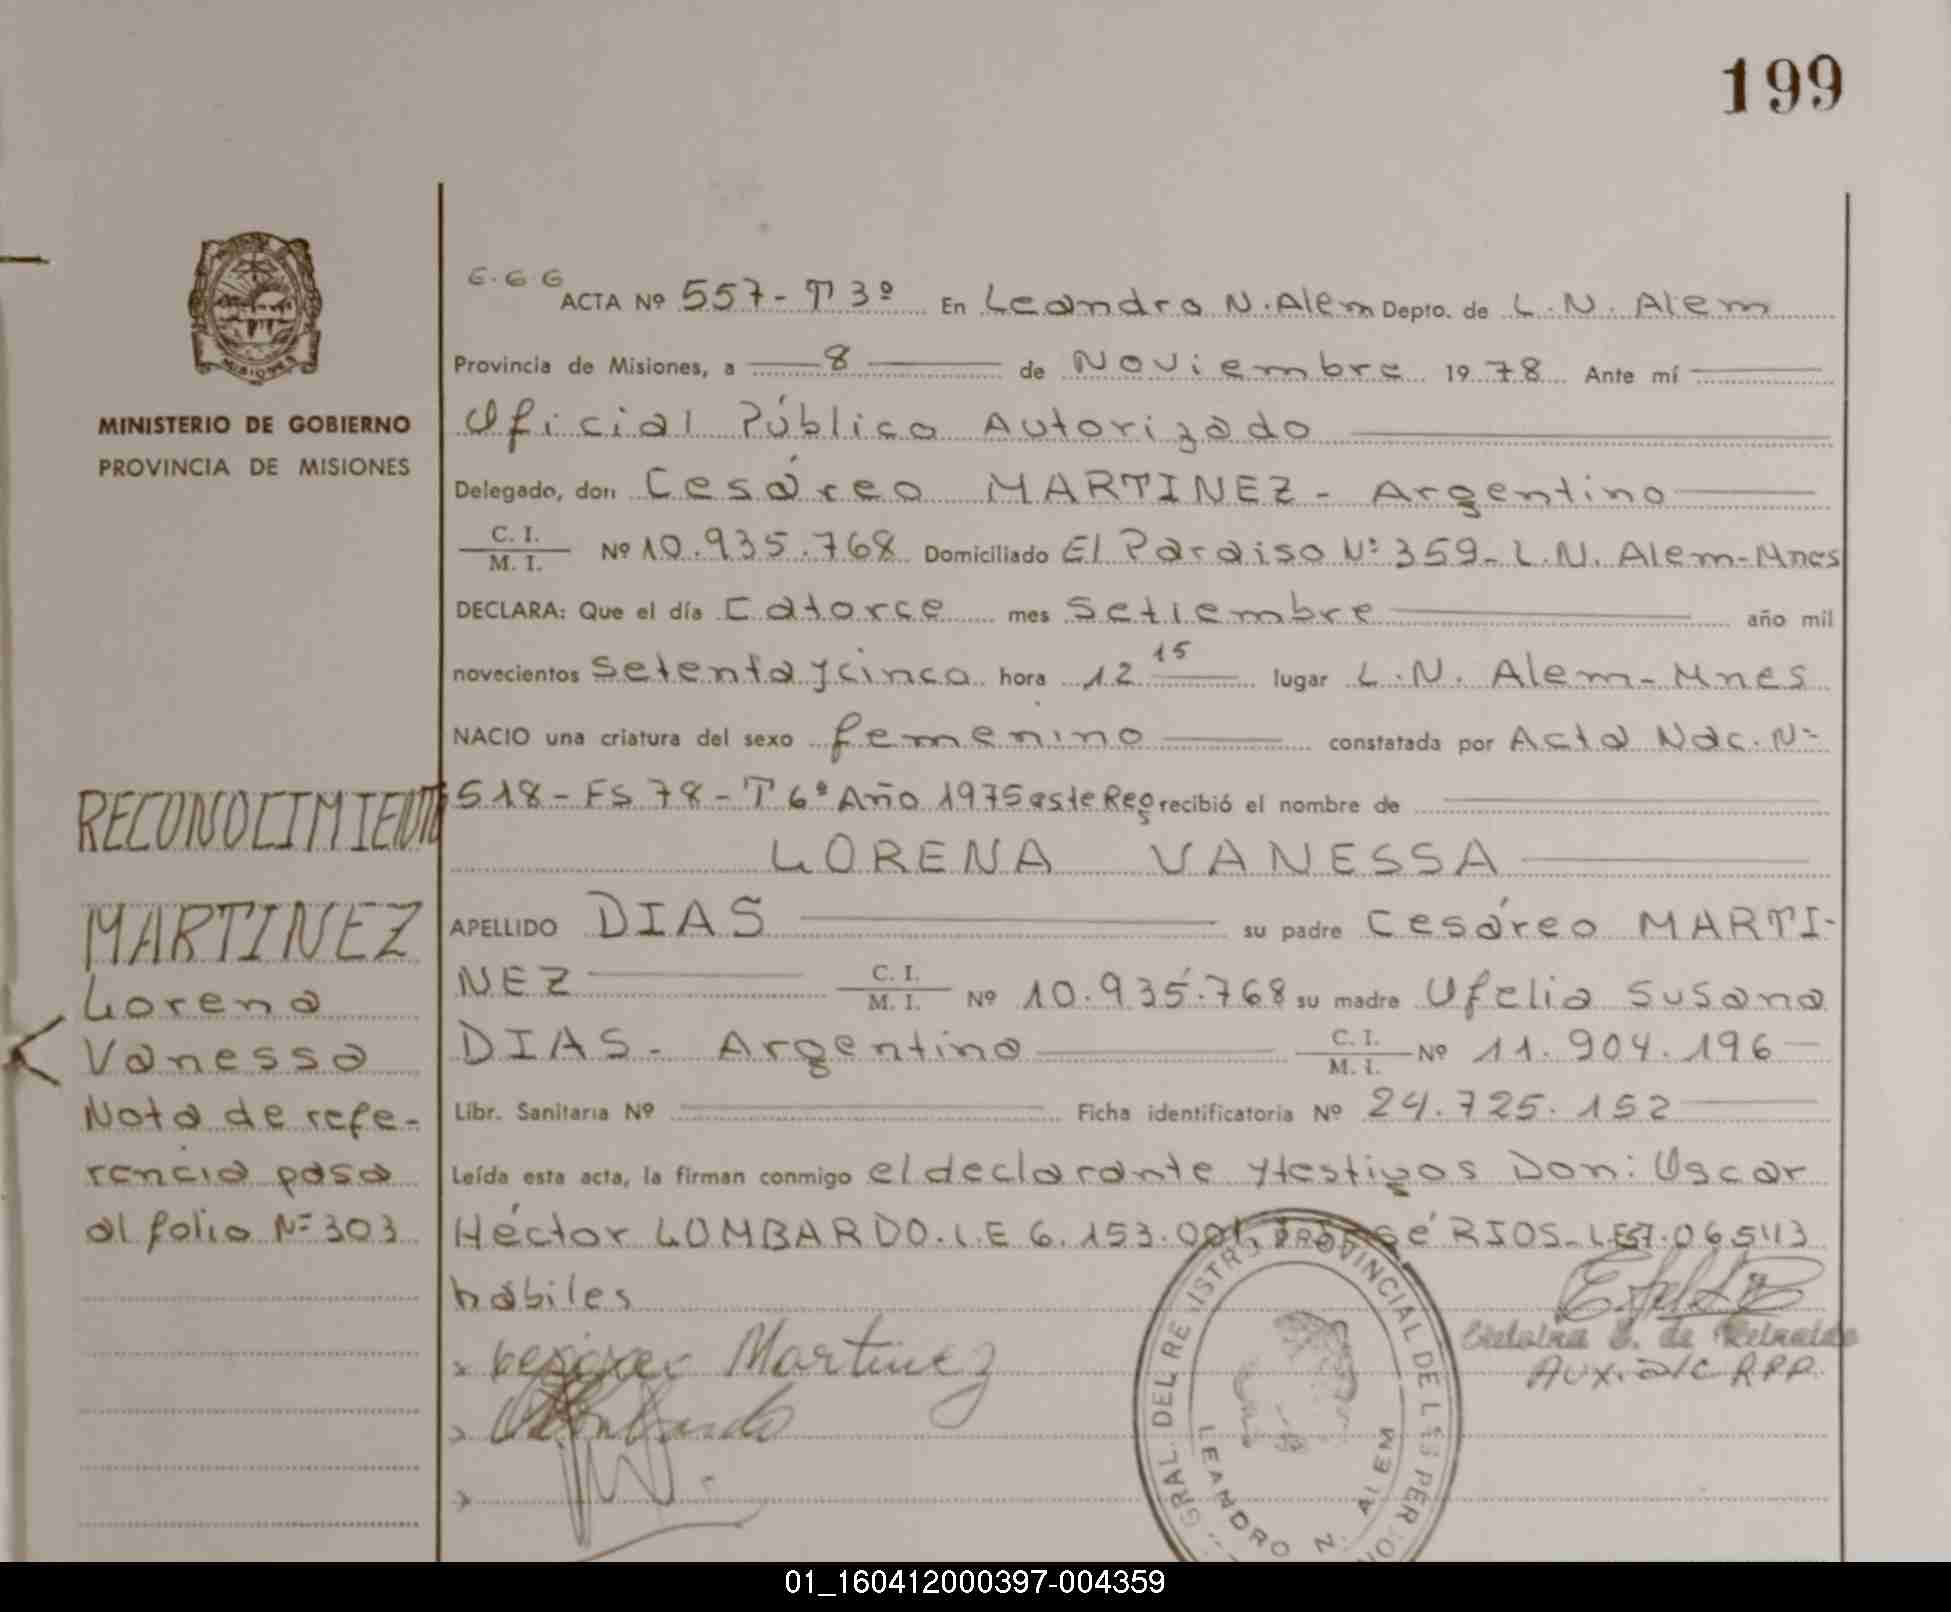 199
E.G.G
ACTA Nº 557-T 3º En Leandro N. Alem Depto. de L. N. Alem
Provincia de Misiones, a 8 de Noviembre 1978 Ante mí
MINISTERIO DE GOBIERNO
PROVINCIA DE MISIONES
Oficial Público Autorizado
Delegado, don Cesáreo MARTINEZ - Argentino
C. I.
M. I. Nº 10.935.768 Domiciliado El Paraiso Nº 359-L.N. Alem-Mnes
DECLARA: Que el día Catorce mes Setiembre año mil
novecientos Setenta y cinco hora 12 15 lugar L.N. Alem-Mnes
NACIO una criatura del sexo femenino constatada por Acta Nac. Nº
518-FS 78-T 6º Año 1975 este Reg recibió el nombre de
LORENA VANESSA
APELLIDO DIAS su padre Cesáreo MARTI-
NEZ C. I.
M. I. Nº 10.935.768 su madre Ofelia Susana
DIAS - Argentina C. I.
M. I. Nº 11.904.196
Libr. Sanitaria Nº Ficha identificatoria Nº 24.725.152
Leída esta acta, la firman conmigo el declarante y testigos Don: Oscar
Héctor LOMBARDO. L.E 6.153.001 RIOS - L.E
hábiles
RECONOCIMIENTO
MARTINEZ
Lorena
Vanessa
Nota de refe-
rencia pasa
al folio Nº 303
Martinez
Aux. a/c R.P.P.
GRAL. DEL REGISTRO PROVINCIAL DE LAS PERSONAS
LEANDRO N. ALEM
01_160412000397-004359